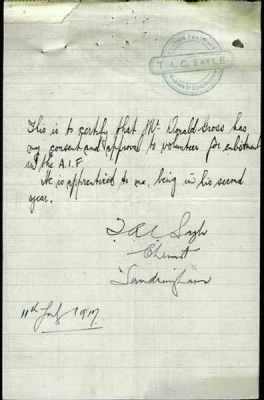 T. A. G. EAYLE
This is to certify that Mr Donald Gross has
my consent and approval to volunteer for enlistment
in the A.I.F
He is apprenticed to me, being in his second
year.
Chemist
Sandringham
11th July 1917.